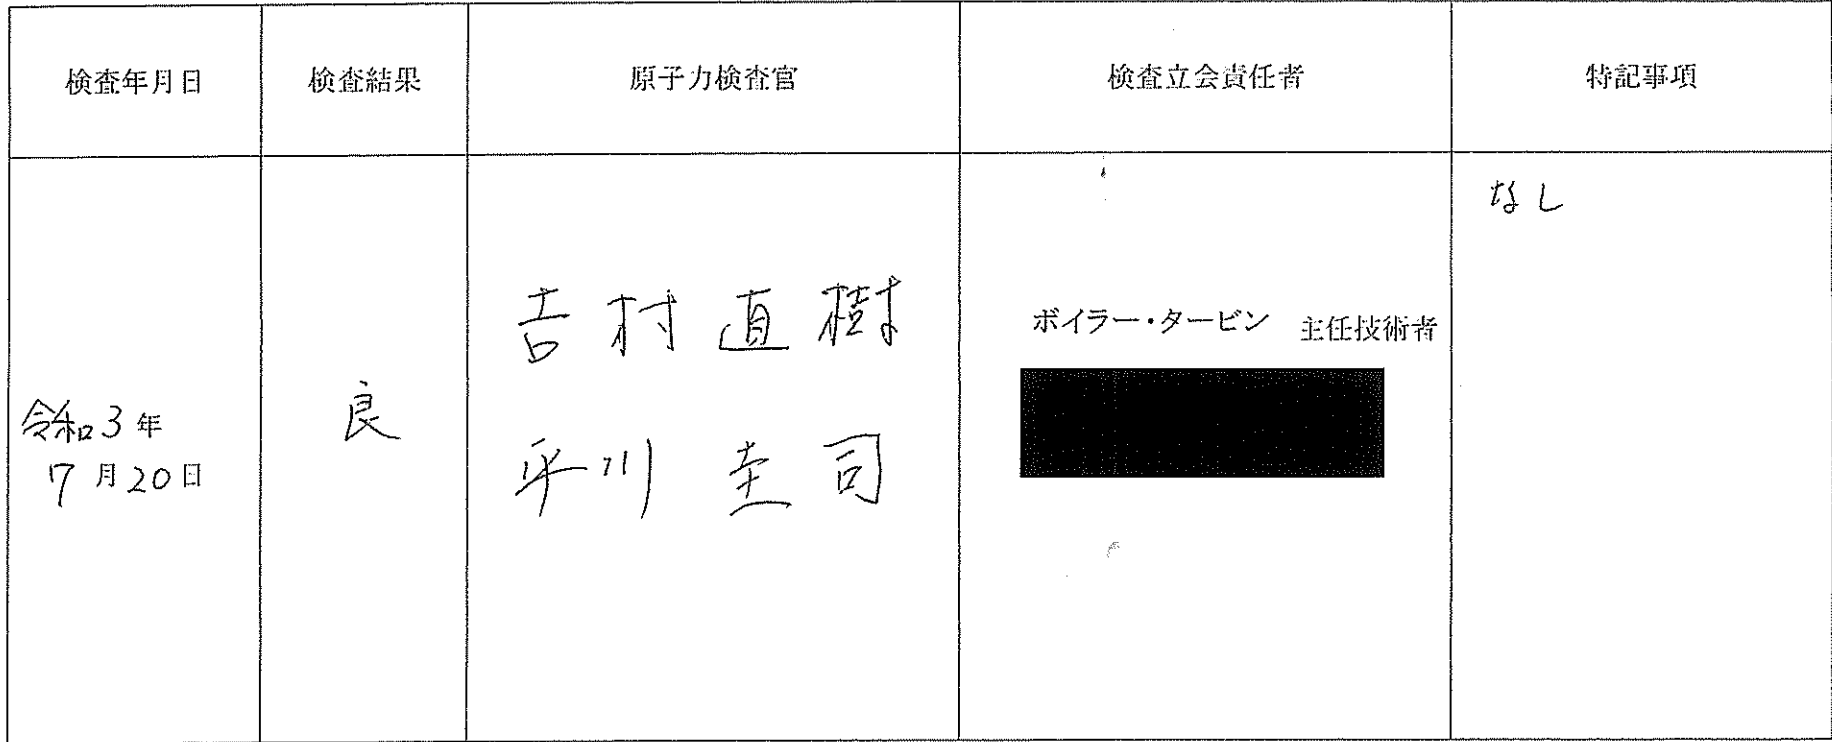 検査年月日
検査結果
原子力検査官
検査立会責任者
特記事項
令和3年
7月20日
良
吉村直樹
平川圭司
ボイラー・タービン 主任技術者
なし